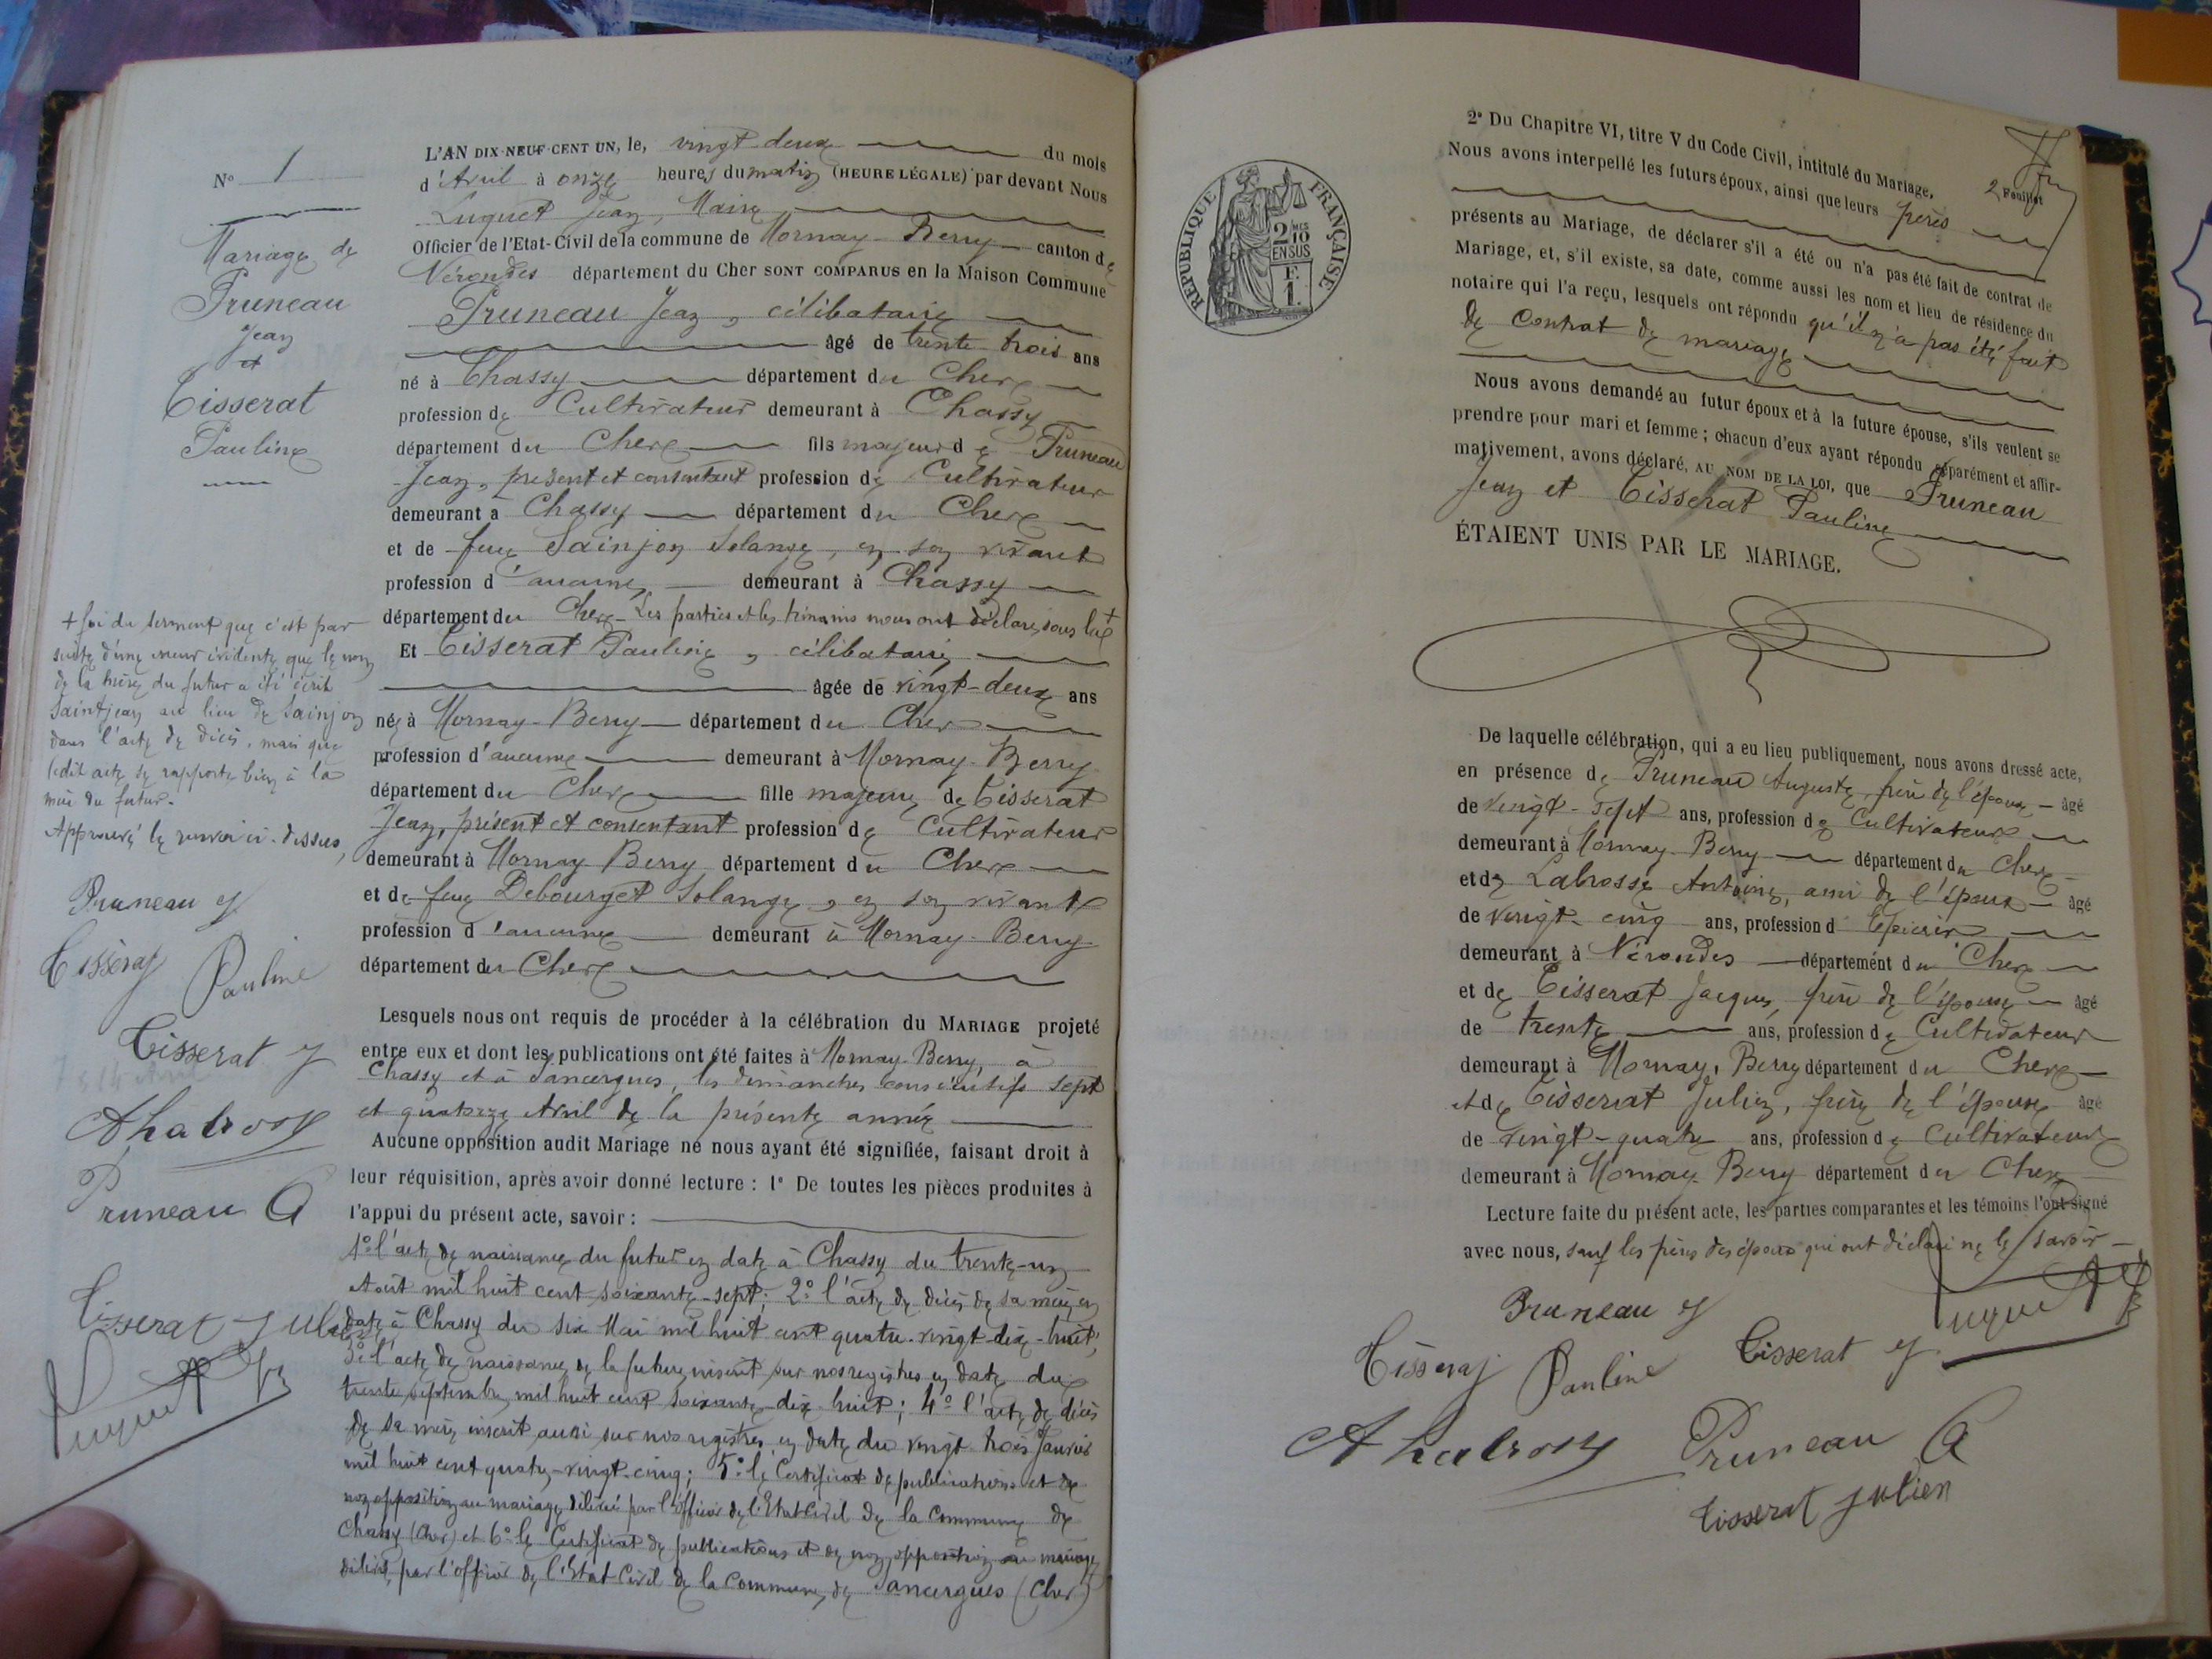 N° 1
Mariage de
Pruneau
Jean
et
Tisserat
Pauline
L'AN DIX-NEUF-CENT UN, le, vingt deux du mois
d'Avril à onze heures du matin (HEURE LÉGALE) par devant Nous
Luquet Jean, Maire
Officier de l'Etat-Civil de la commune de Mornay-Berry canton de
Nérondes département du Cher SONT COMPARUS en la Maison Commune
Pruneau Jean, célibataire
âgé de trente trois ans
né à Chassy département du Cher
profession de Cultivateur demeurant à Chassy
département du Cher fils majeur de Pruneau
Jean, présent et consentant profession de Cultivateur
demeurant à Chassy département du Cher
et de feue Sainjon Solange, en son vivant
profession d'aucune, demeurant à Chassy
département du Cher - Les parties et les témoins nous ont déclaré sous la +
Et Tisserat Pauline, célibataire
âgée de vingt-deux ans
née à Mornay-Berry département du Cher
profession d'aucune demeurant à Mornay-Berry
département du Cher fille majeure de Tisserat
Jean, présent et consentant profession de Cultivateur
demeurant à Mornay-Berry département du Cher
et de feue Debourget Solange, en son vivant
profession d'aucune demeurant à Mornay-Berry
département du Cher
Lesquels nous ont requis de procéder à la célébration du MARIAGE projeté
entre eux et dont les publications ont été faites à Mornay-Berry, à
Chassy et à Sancergues, les dimanches consécutifs sept
et quatorze Avril de la présente année
Aucune opposition audit Mariage ne nous ayant été signifiée, faisant droit à
leur réquisition, après avoir donné lecture : 1° De toutes les pièces produites à
l'appui du présent acte, savoir :
1° l'acte de naissance du futur en date à Chassy du trente-un
Août mil huit cent soixante-sept; 2° l'acte de décès de sa mère en
date à Chassy du six Mai mil huit cent quatre-vingt-dix-huit;
3° l'acte de naissance de la future inscrit sur nos registres en date du
trente septembre mil huit cent soixante-dix-huit; 4° l'acte de décès
de sa mère inscrit aussi sur nos registres en date du vingt trois Janvier
mil huit cent quatre-vingt-cinq; 5° le Certificat de publications et de
non opposition au mariage délivré par l'officier de l'Etat Civil de la commune de
Chassy (Cher) et 6° le Certificat de publications et de non opposition au mariage
délivré par l'officier de l'Etat Civil de la commune de Sancergues (Cher)
+ foi du serment que c'est par
suite d'une erreur évidente que le nom
de la mère du futur a été écrit
Saintjean au lieu de Sainjon
dans l'acte de décès, mais que
ledit acte se rapporte bien à la
mère du futur.
Approuvé le renvoi ci-dessus,
Pruneau J
Tisserat Pauline
Tisserat J
A Labrosse
Pruneau A
Tisserat Julien
Luquet
REPUBLIQUE FRANÇAISE
2 MES
10
EN SUS
F.
1.
2 Feuillet
2° Du Chapitre VI, titre V du Code Civil, intitulé du Mariage,
Nous avons interpellé les futurs époux, ainsi que leurs pères
présents au Mariage, de déclarer s'il a été ou n'a pas été fait de contrat de
Mariage, et, s'il existe, sa date, comme aussi les nom et lieu de résidence du
notaire qui l'a reçu, lesquels ont répondu qu'il n'a pas été fait
de contrat de mariage
Nous avons demandé au futur époux et à la future épouse, s'ils veulent se
prendre pour mari et femme; chacun d'eux ayant répondu séparément et affir-
mativement, avons déclaré, AU NOM DE LA LOI, que Pruneau
Jean et Tisserat Pauline
ÉTAIENT UNIS PAR LE MARIAGE.
De laquelle célébration, qui a eu lieu publiquement, nous avons dressé acte,
en présence de Pruneau Auguste, frère de l'époux âgé
de vingt-sept ans, profession de Cultivateur
demeurant à Mornay-Berry département du Cher
et de Labrosse Antoine, ami de l'époux âgé
de vingt-cinq ans, profession d'Epicier
demeurant à Nérondes département du Cher
et de Tisserat Jacques, frère de l'épouse âgé
de trente ans, profession de Cultivateur
demeurant à Mornay-Berry département du Cher
et de Tisserat Julien, frère de l'épouse âgé
de vingt-quatre ans, profession de Cultivateur
demeurant à Mornay-Berry département du Cher
Lecture faite du présent acte, les parties comparantes et les témoins l'ont signé
avec nous, sauf les pères des époux qui ont déclaré ne le savoir
Pruneau J
Luquet
Tisserat Pauline
Tisserat J
A Labrosse
Pruneau A
Tisserat Julien